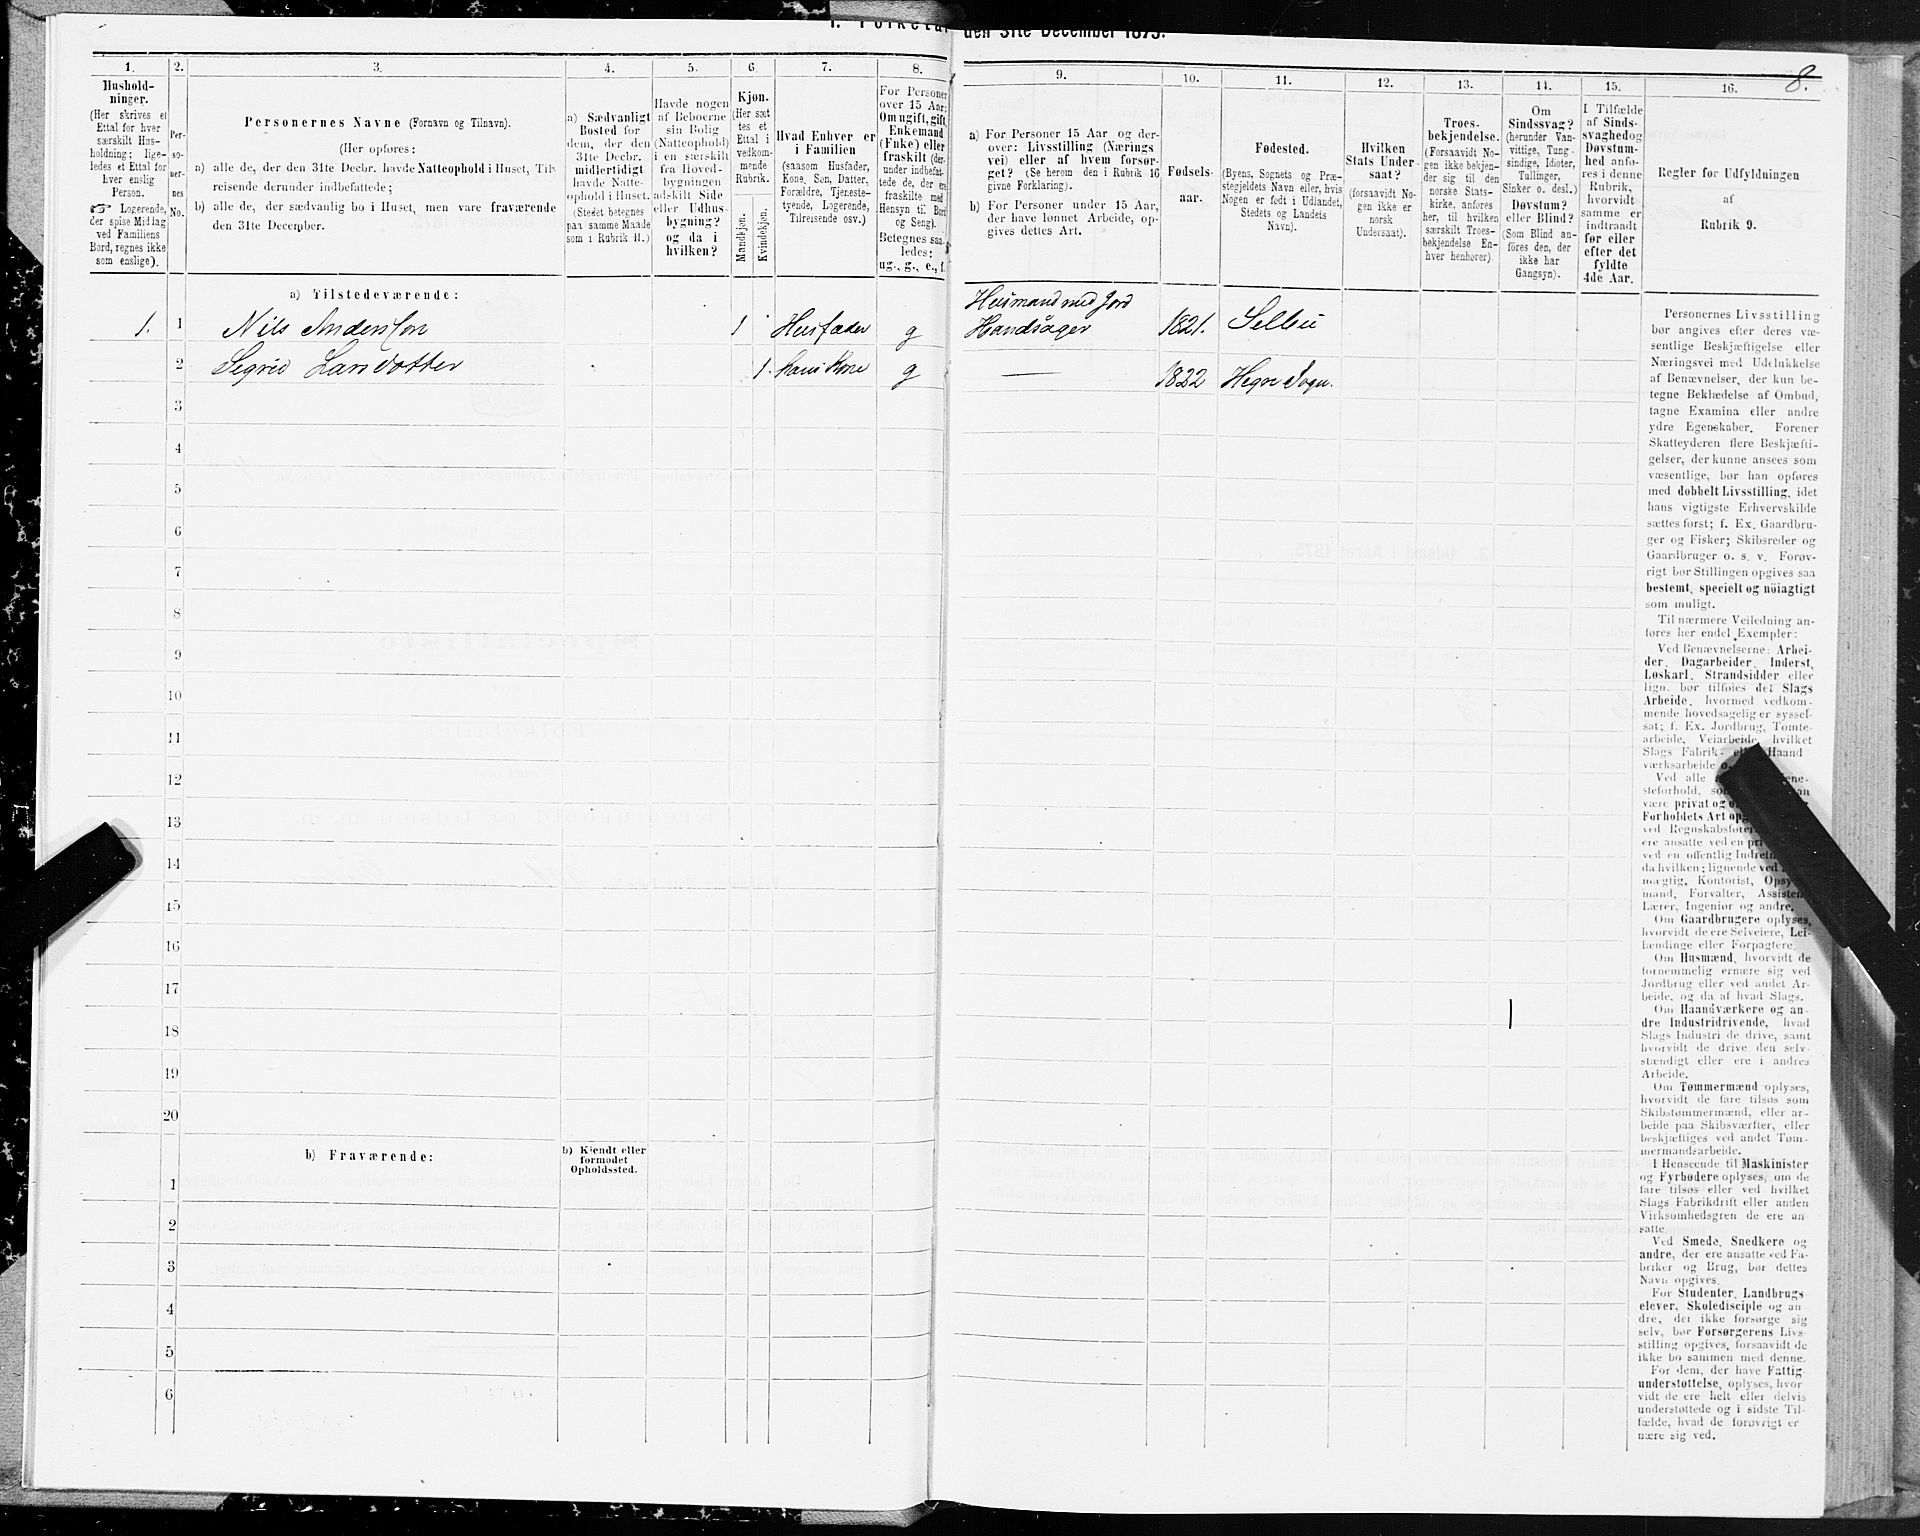 den 31te December 1875.
8.
1.
2.
3.
4.
5.
6.
7.
8.
9.
10.
11.
12.
13.
14.
15.
16.
Hushold-
ninger.
(Her skrives et
Ettal for hver
særskilt Hus-
holdning; lige-
ledes et Ettal for
hver enslig
Person.
☞ Logerende,
der spise Middag
ved Familiens
Bord, regnes ikke
som enslige).
Per-
so-
ner-
nes
No.
Personernes Navne (Fornavn og Tilnavn).
(Her opføres:
a) alle de, der den 31te Decbr. havde Natteophold i Huset, Til-
reisende derunder indbefattede;
b) alle de, der sædvanlig bo i Huset, men vare fraværende
den 31te December.
a) Sædvanligt
Bosted for
dem, der den
31te Decbr.
midlertidigt
havde Natte-
ophold i Huset.
(Stedet betegnes
paa samme Maade
som i Rubrik 11.)
Havde nogen
af Beboerne
sin Bolig
(Natteophold)
i en særskilt
fra Hoved-
bygningen
adskilt Side
eller Udhus-
bygning?
og da i
hvilken?
Kjøn.
(Her sæt
tes et
Ettal i
vedkom-
mende
Rubrik.
Mandkjøn.
Kvindekjøn.
Hvad Enhver er
i Familien
(saasom Husfader,
Kone, Søn, Datter,
Forældre, Tjeneste-
tyende, Logerende,
Tilreisende osv.)
For Personer
over 15 Aar:
Om ugift, gift,
Enkemand
(Enke) eller
fraskilt (der-
under indbefat-
tede de, der ere
fraskilte med
Hensyn til Bord
og Seng).
Betegnes saa-
ledes:
ug., g., e., f.
a) For Personer 15 Aar og der-
over: Livsstilling (Nærings
vei) eller af hvem forsør-
get? (Se herom den i Rubrik 16
givne Forklaring).
b) For Personer under 15 Aar,
der have lønnet Arbeide, op-
gives dettes Art.
Fødsels-
aar.
Fødested.
(Byens, Sognets og Præ-
stegjeldets Navn eller, hvis
Nogen er født i Udlandet,
Stedets og Landets
Navn).
Hvilken
Stats Under-
saat?
(forsaavidt No-
gen ikke er
norsk
Undersaat).
Troes-
bekjendelse.
(Forsaavidt No-
gen ikke bekjen-
der sig til den
norske Stats-
kirke, anføres
her, til hvilken
særskilt Troes-
bekjendelse En-
hver henhører)
Om
Sindssvag?
(herunder Van-
vittige, Tung-
sindige, Idioter,
Tullinger,
Sinker o. desl.)
Døvstum?
eller Blind?
(Som Blind an-
føres den, der
ikke har
Gangsyn).
I Tilfælde
af Sinds-
svaghed og
Døvstum-
hed anfø-
res i denne
Rubrik,
hvorvidt
samme er
indtraadt
før eller
efter det
fyldte
4de Aar.
Regler for Udfyldningen
af
Rubrik 9.
a) Tilstedeværende:
1. 1 Nils Andersson 1 Husfader g Husmand med Jord
Handsager 1821. Selbu
2 Sigrid Larsdatter 1. hans Kone g — 1822 Hegre Sogn.
3
4
5
6
7
8
9
10
11
12
13
14
15
16
17
18
19
20
b) Fraværende:
b) Kjendt eller
formodet
Opholdssted.
1
2
3
4
5
6
Personernes Livsstilling
bør angives efter deres væ-
sentlige Beskjæftigelse eller
Næringsvei med Udelukkelse
af Benævnelser, der kun be-
tegne Beklædelse af Ombud,
tagne Examina eller andre
ydre Egenskaber. Forener
Skatteyderen flere Beskjæfti-
gelser, der kunne ansees som
væsentlige, bør han opføres
med dobbelt Livsstilling, idet
hans vigtigste Erhvervskilde
sættes først; f. Ex. Gaardbru-
ger og Fisker; Skibsreder og
Gaardbruger o. s. v. Forøv-
rigt bør Stillingen opgives saa
bestemt, specielt og nøiagtigt
som muligt.
Til nærmere Veiledning an-
føres her endel Exempler:
Ved Benævnelserne: Arbei-
der, Dagarbeider, Inderst,
Løskarl, Strandsidder eller
lign. bør tilføies det Slags
Arbeide, hvormed vedkom-
mende hovedsagelig er syssel-
sat; f. Ex. Jordbrug, Tomte-
arbeide, Veiarbeide, hvilket
Slags Fabrik- eller Haand
værksarbeide o.
Ved alle
steforhold,
være privat og
Forholdets Art
ved Regnskabsfører
ere ansatte ved en
ved en offentlig
da hvilken; lignende ved
mægtig, Kontorist,
mand, Forvalter, Assistent
Lærer, Ingeniør og andre.
Om Gaardbrugere oplyses,
hvorvidt de ere Selveiere, Lei-
lændinge eller Forpagtere.
Om Husmænd, hvorvidt de
fornemmelig ernære sig ved
Jordbrug eller ved andet Ar-
beide, og da af hvad Slags.
Om Haandværkere og an-
dre Industridrivende, hvad
Slags Industri de drive, samt
hvorvidt de drive den selv-
stændigt eller ere i andres
Arbeide.
Om Tømmermænd oplyses,
hvorvidt de fare tilsøs som
Skibstømmermænd, eller ar-
beide paa Skibsværfter, eller
beskjæftiges ved andet Tøm-
mermandsarbeide.
I Henseende til Maskinister
og Fyrbødere oplyses, om de
fare tilsøs eller ved hvilket
Slags Fabrikdrift eller anden
Virksomhedsgren de ere an-
satte.
Ved Smede, Snedkere og
andre, der ere ansatte ved Fa-
briker og Brug, bør dettes
Navn opgives.
For Studenter, Landbrugs
elever, Skoledisciple og an-
dre, der ikke forsørge sig
selv, bør Forsørgerens Livs-
stilling opgives, forsaavidt de
ikke bo sammen med denne.
For dem, der have Fattig-
understøttelse, oplyses, hvor
vidt de ere helt eller delvis
understøttede og i sidste Til-
fælde, hvad de forøvrigt er
nære sig ved.